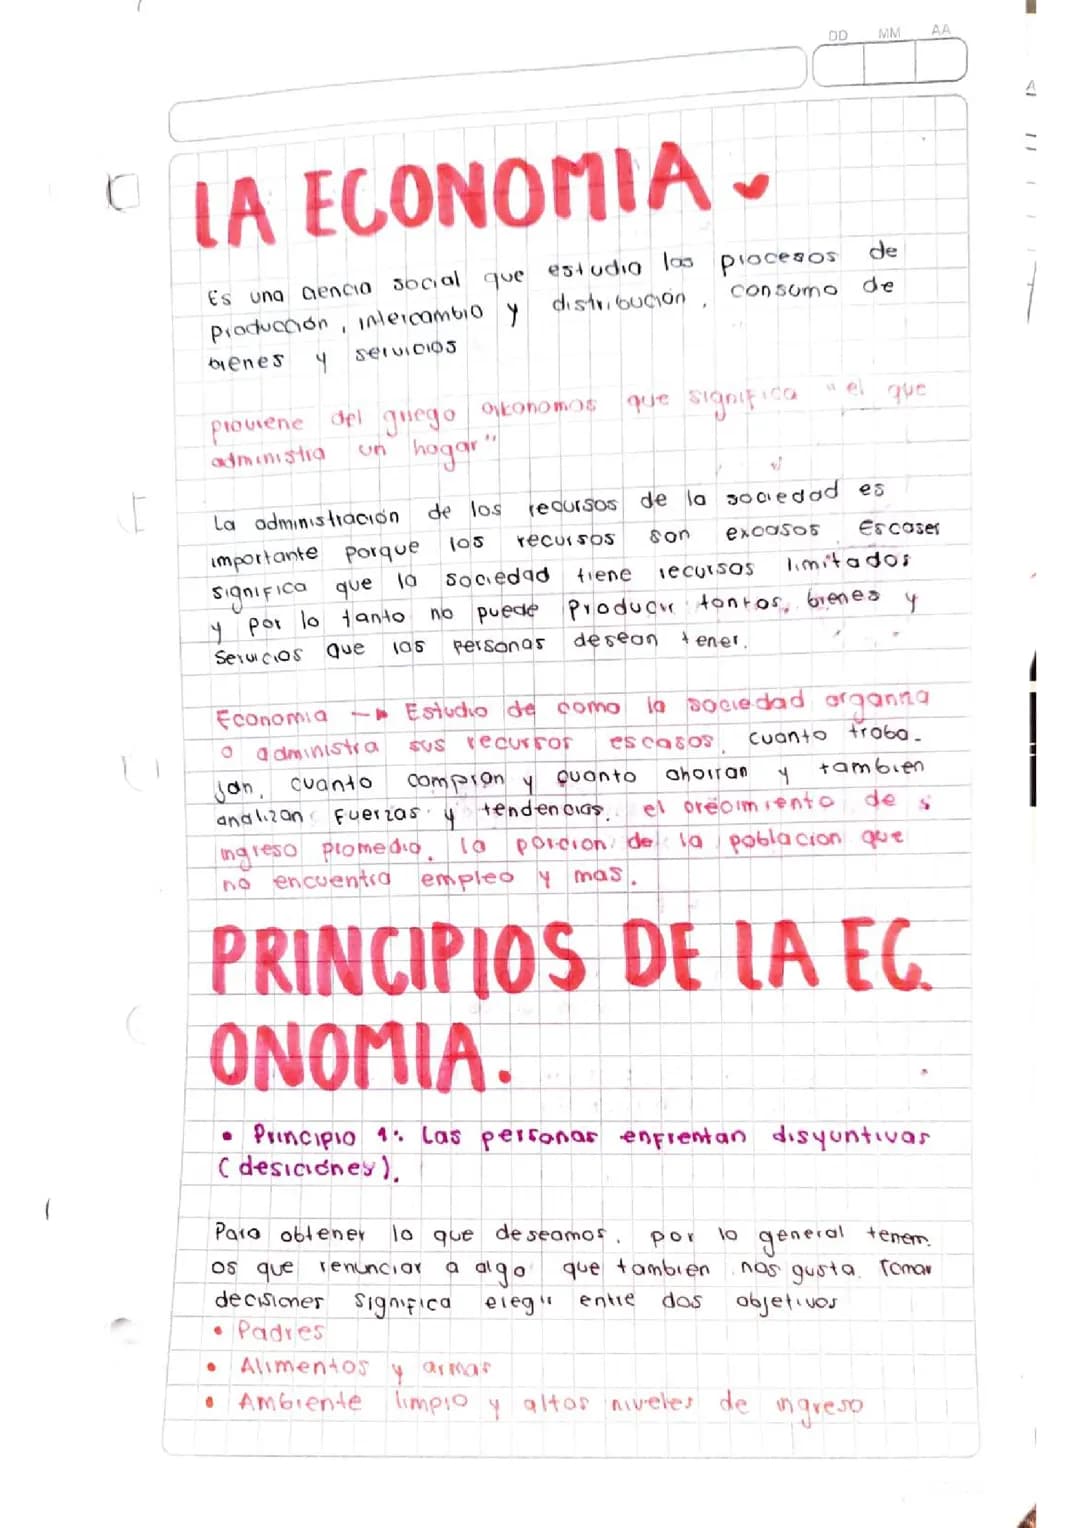 DD MM AA
LA ECONOMIA
Es una ciencia social que estudia los procesos de
producción, intercambio y distribución, consumo de
bienes y servicios
proviene del griego oikonomos que significa "el que
administra un hogar"
La administración de los recursos de la sociedad es
importante porque los recursos son excasos. Escases
significa que la sociedad tiene recursos limitados
y por lo tanto no puede producir tantos bienes y
servicios que las personas desean tener.
Economia → Estudio de como la sociedad organiza
o administra sus recursos escasos, cuanto traba-
jan, cuanto compran y cuanto ahorran y tambien
analizan fuerzas y tendencias, el crecimiento de
ingreso promedio, la porcion de la poblacion que
no encuentra empleo y mas.
PRINCIPIOS DE LA EC.
ONOMIA.
• Principio 1: Las personas enfrentan disyuntivas
(desiciones).
Para obtener lo que deseamos, por lo general tenem.
os que renunciar a algo que tambien nos gusta. Tomar
decisiones significa elegir entre dos objetivos
• Padres
• Alimentos y armas
• Ambiente limpio y altos niveles de ingreso